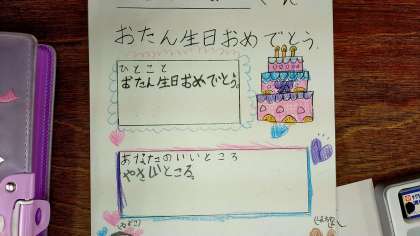 おたん生日おめでとう。
ひとこと
おたん生日おめでとう。
あなたのいいところ
やさしいところ。